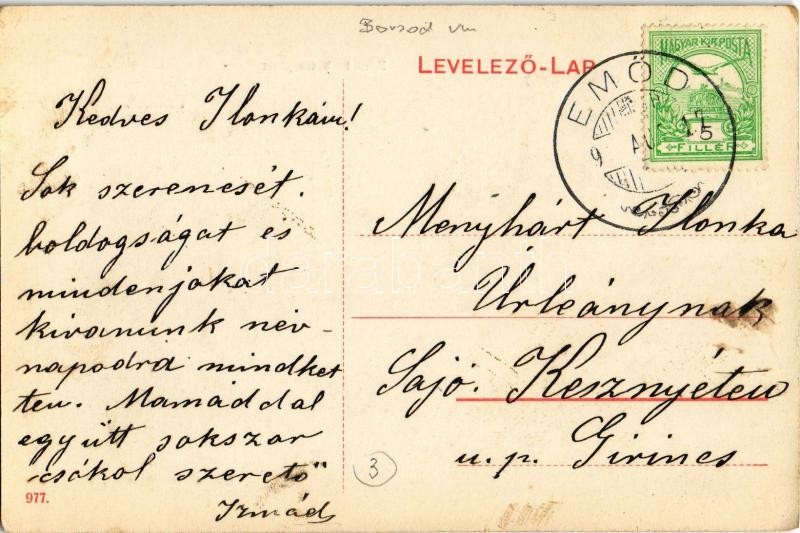 Borsod vm
LEVELEZŐ-LAP
MAGYAR KIR. POSTA
5
FILLÉR
EMŐD
Kedves Ilonkám!
Sok szerencsét.
boldogságat és
minden jokat
kivanunk név-
napodra mindket
ten. Mamáddal
együtt sokszor
csókol szerető
Irmád
977.
3
Menyhárt Ilonka
Úrleánynak
Sajó. Kesznyéten
u. p. Girincs
darabanth